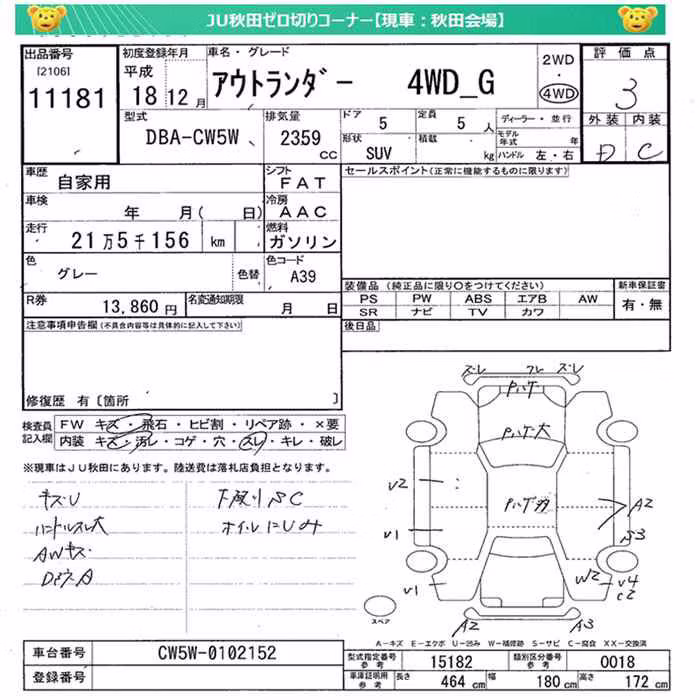 JU秋田ゼロ切りコーナー【現車：秋田会場】
出品番号
[2106]
11181
初度登録年月
平成
18 12 月
車名・グレード
アウトランダー 4WD_G
2WD
4WD
評価点
3
外装 内装
D C
型式
DBA-CW5W
排気量
2359 cc
ドア 5
定員 5 人
形状 SUV
積載 kg
ディーラー・並行
モデル年式 年
ハンドル 左・右
車歴
自家用
シフト
FAT
車検
年 月( 日)
冷房
AAC
走行
21万5千156 km
燃料
ガソリン
色
グレー
色替
色コード
A39
R券
13,860 円
名変通知期限
月 日
セールスポイント(正常に機能するものに限ります)
装備品 (純正品に限り○をつけてください)
PS PW ABS エアB AW
SR ナビ TV カワ
新車保証書
有・無
後日品
注意事項申告欄(不具合内容等は具体的に記入して下さい)
修復歴 有〔箇所 〕
検査員記入欄
FW キズ・飛石・ヒビ割・リペア跡・×要
内装 キズ・汚レ・コゲ・穴・スレ・キレ・破レ
※現車はJU秋田にあります。陸送費は落札店負担となります。
キズU
ハンドルスレ大
AWキズ
下廻りSC
オイルにじみ
ズレ フレ ズレ
ハゲ
ハゲ大
V2
A2
V1
S3
V1
W2
V4
C2
A2
A3
スペア
A－キズ E－エクボ U－凹み W－補修跡 S－サビ C－腐食 XX－交換済
車台番号
CW5W-0102152
登録番号
型式指定番号 参考
15182
類別区分番号 参考
0018
車庫証明用 参考
長さ 464 cm
幅 180 cm
高さ 172 cm